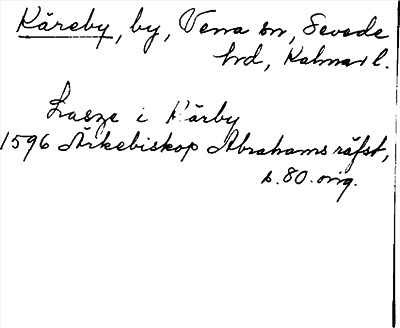 Käreby, by, Vena sn, Sevede
hd, Kalmar l.
Lasze i Kärby
1596 Ärkebiskop Abrahams räfst,
s. 80. orig.